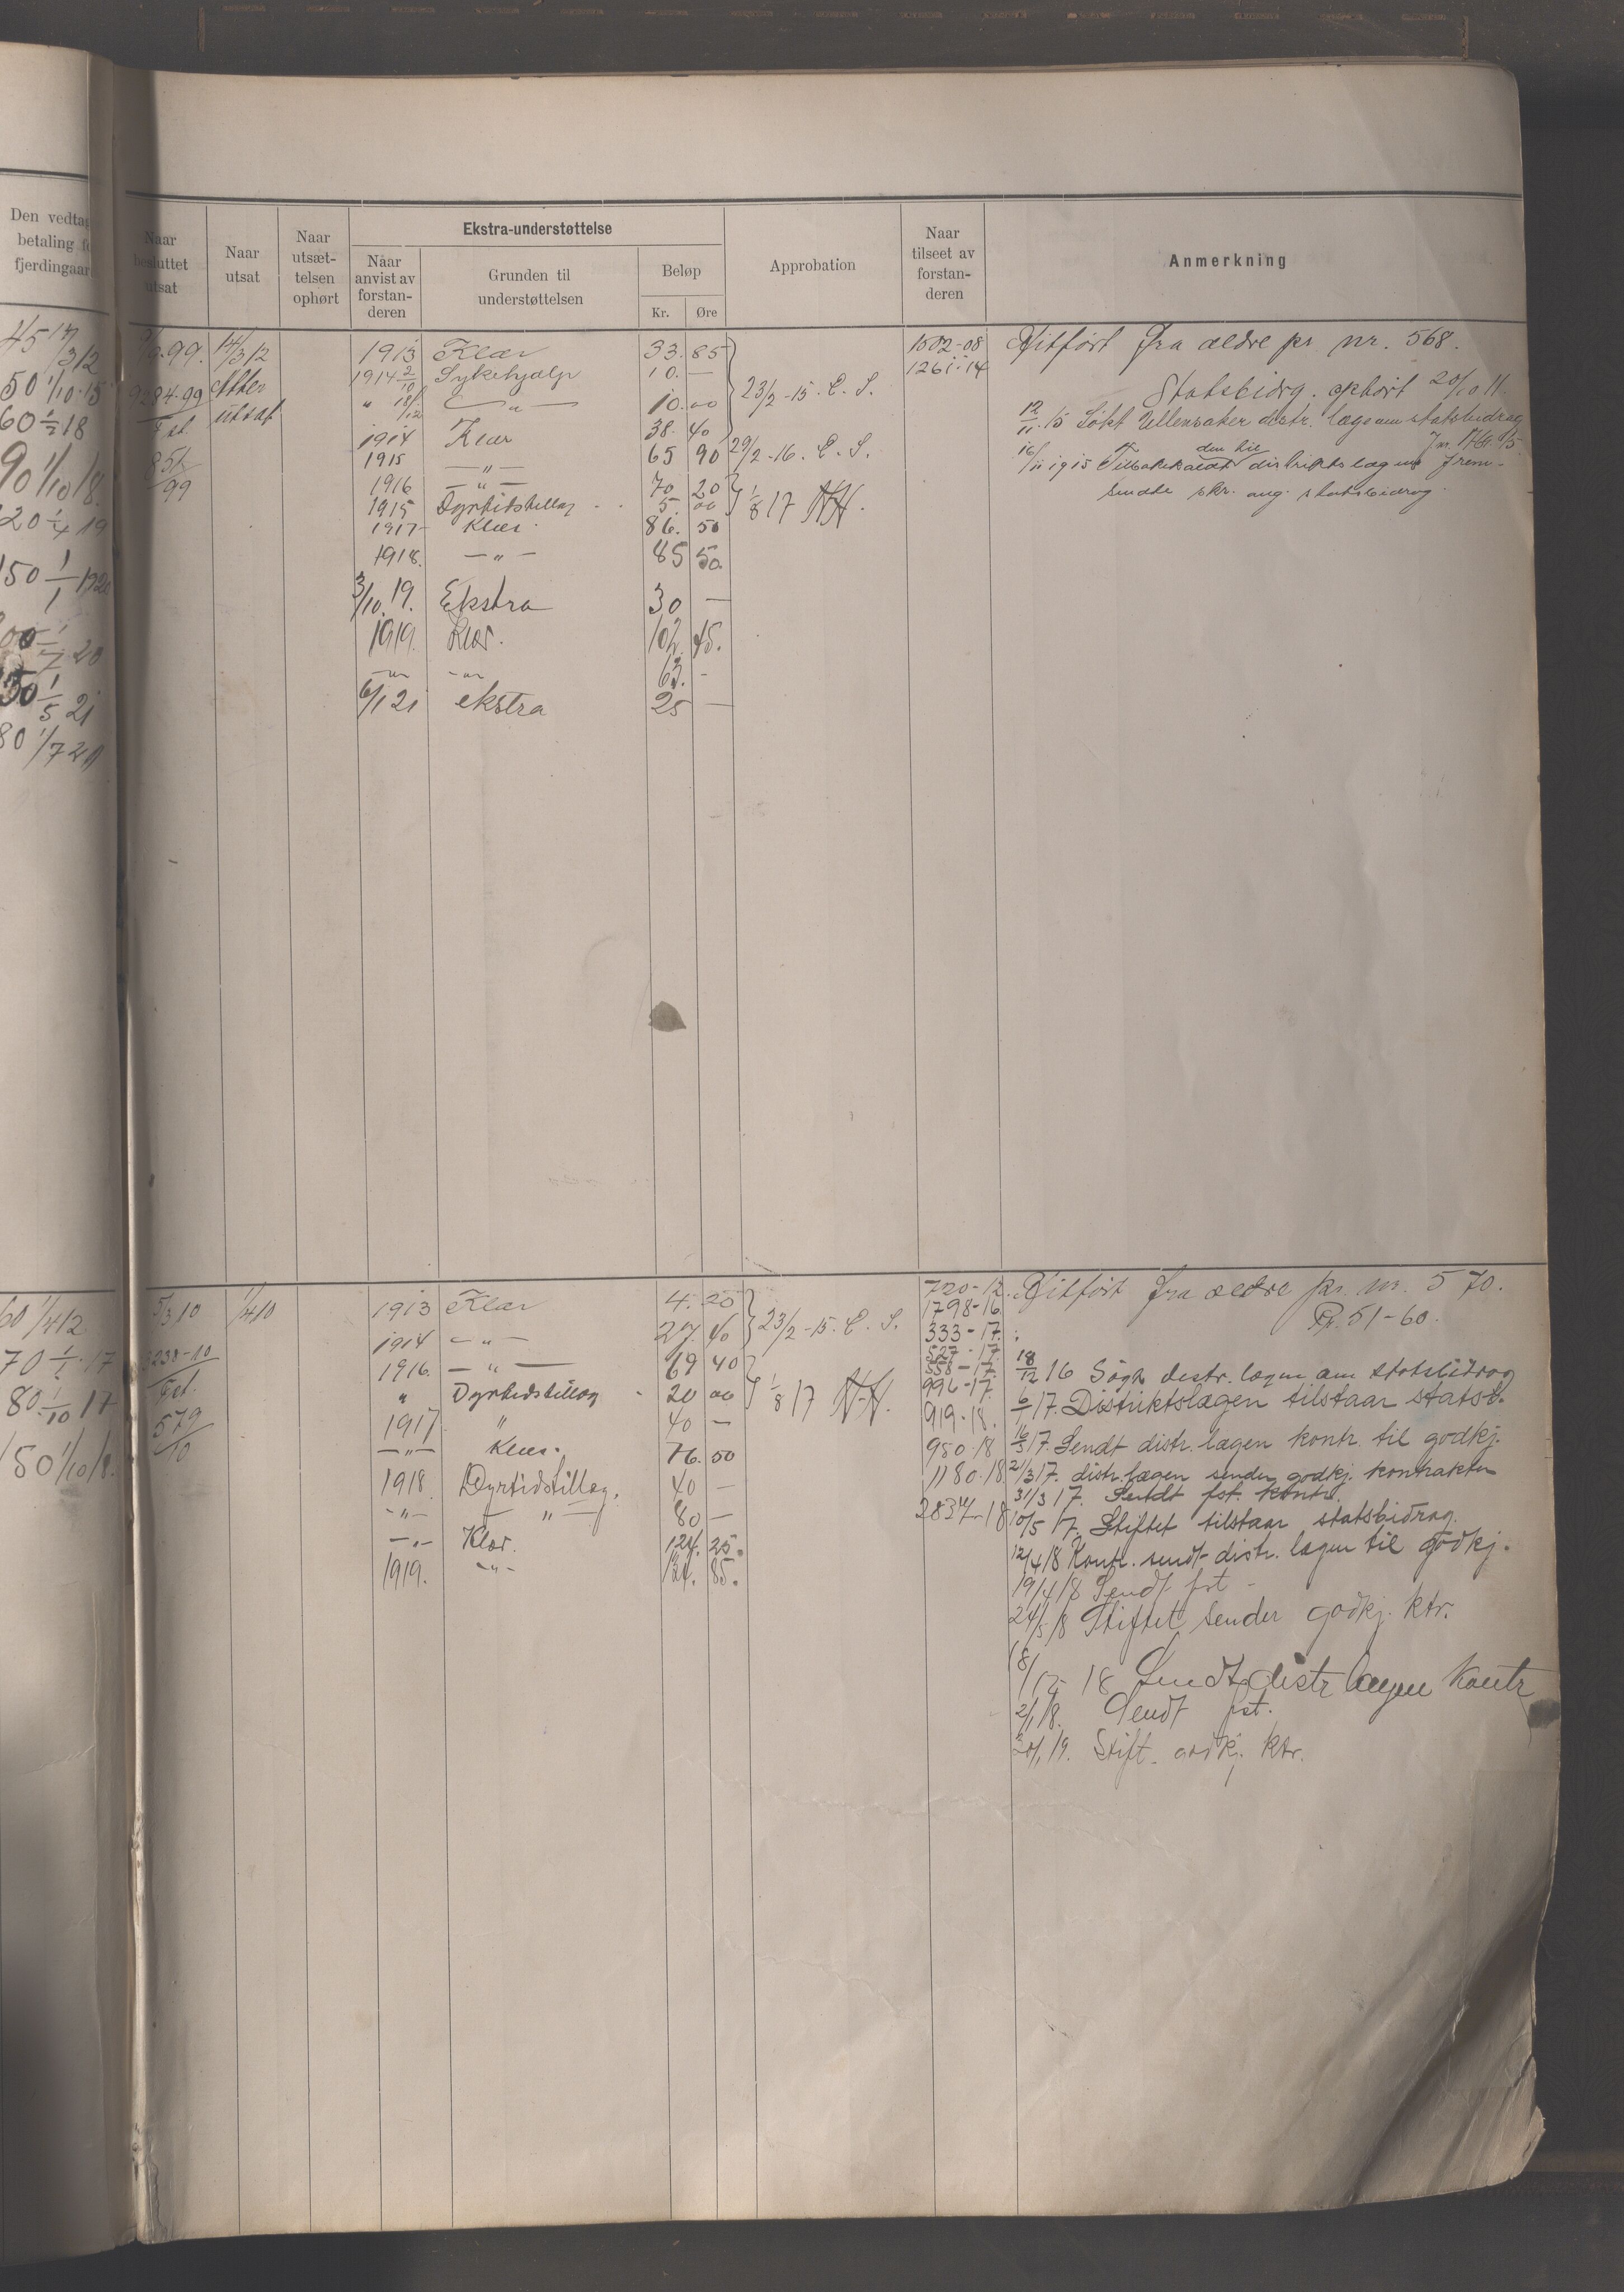 Den vedtag
betaling fo
fjerdingaar
Naar
besluttet
utsat
Naar
utsat
Naar
utsæt-
telsen
ophørt
Ekstra-understøttelse
Naar
anvist av
forstan-
deren
Grunden til
understøttelsen
Beløp
Kr. Øre
Approbation
Naar
tilseet av
forstan-
deren
Anmerkning
45 1/3 12
50 1/10 15
60 1/2 18
90 1/10 18.
120 1/4 19
150 1/1 1920
1/7 20
1/5 21
80 1/7 21
99. 14/3 12
9284.99 Atter
Fst. utsat
851/99
1913 Klær 33. 85
1914 2/10 Sykehjælp 10. —
" 18/12 — " — 10. 00
1914 Klær 38. 40
1915 — " — 65 90
1916 — " — 70 20
1915 Dyrtidstillæg 5. 00
1917 Klær. 86. 50
1918. — " — 85 50.
3/10. 19. Ekstra 30 —
1919. Klær. 102. 45.
— " — " 63. -
6/1 21 ekstra 25 —
23/2 - 15. C. S.
29/2 - 16. C. S.
1/8 17 HH.
1502-08
1261-14
Ditført fra ældre pr. nr. 568.
Statsbidrg. ophørt 20/10 11.
12/11. 15 Søkt Ullensaker distr. læge om statsbidrag
16/11 1915 Tilbakekaldt den til distriktslægen frem-
sendte skr. ang. statsbidrag.
60 1/4 12
70 1/1 17
80 1/10 17
150 1/10 18.
5/3 10 1/4 10
5238-10
Fst.
579/10
1913 Klær 4. 25
1914 — " — 27. 40
1916. — " — 69 40
" Dyrtidstillæg 20 00
1917 " 40 —
— " — Klær. 76. 50
1918. Dyrtidstillæg. 40 —
— " — " — 80 —
— " — Klær. 124. 25.
1919. — " — 124. 85.
23/2 - 15. C. S.
1/8 17 H-H.
720-12.
1798-16
333-17.
527-17
558-17
996-17.
919-18.
950-18
1180.18
2837-18
Ditført fra ældre pr. nr. 570.
Pr. 51-60.
18/12 16 Søgt distr. lægen om statsbidrag
6/1 17. Distriktslægen tilstaar statsb.
16/3 17. Sendt distr. lægen kontr. til godkj.
21/3 17. distr. lægen sender godkj. kontrakten
31/3 17. Sendt fst. kontr.
10/5 17. Stiftet tilstaar statsbidrag.
12/4 18 Kontr. sendt distr. lægen til godkj.
19/4 18 Sendt fst -
24/5 18 Stiftet sender godkj. ktr.
18/12 - 18 Sendt distr lægen kontr
2/1 18. Sendt fst.
1 19. Stift. godkj. ktr.